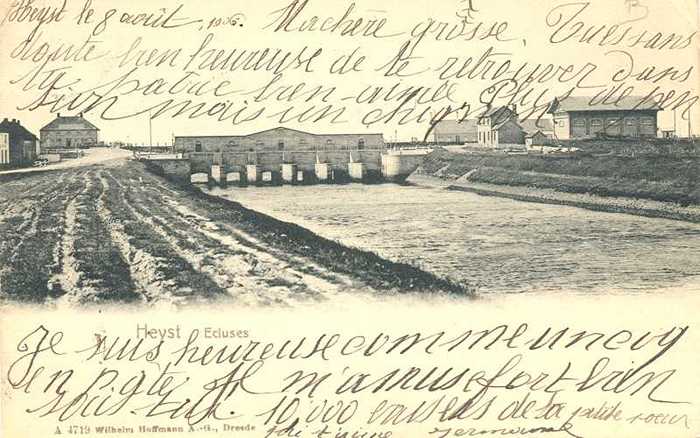 Heyst le 8 août, 1906. Ma chère grosse. Tu es sans
doute bien heureuse de te retrouver dans
ta patrie bien-aimée Plus de pen
sion mais un
Heyst Ecluses
Je suis heureuse comme un coq
en pâte je m'amuse fort bien
10,000 baisers de ta petite soeur
A 4719 Wilhelm Hoffmann A.-G., Dresde
Germaine